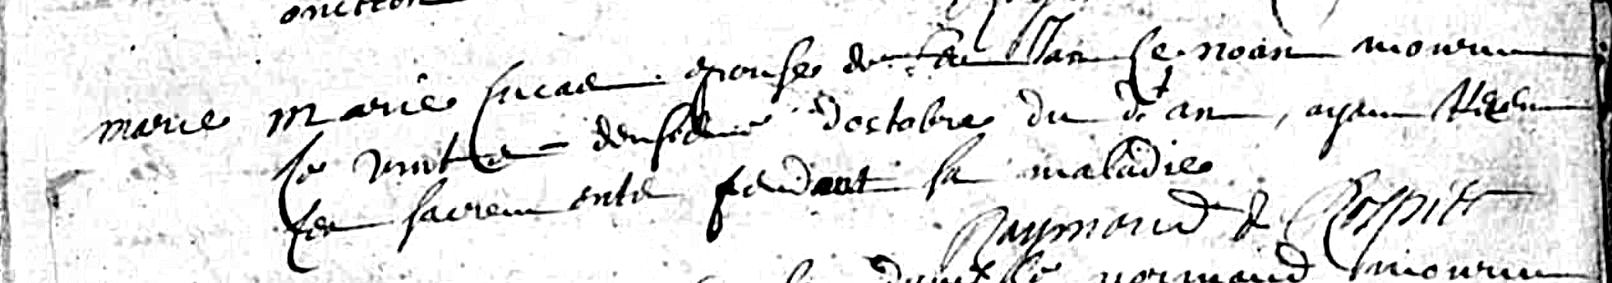 onction
marie Marie Lucas espouse de feu Jan le noan mourut
le vint et deusieme d'octobre du dt an, ayant receu
les sacrements pendant sa maladie
Raymond de Rospiec
normand mourut